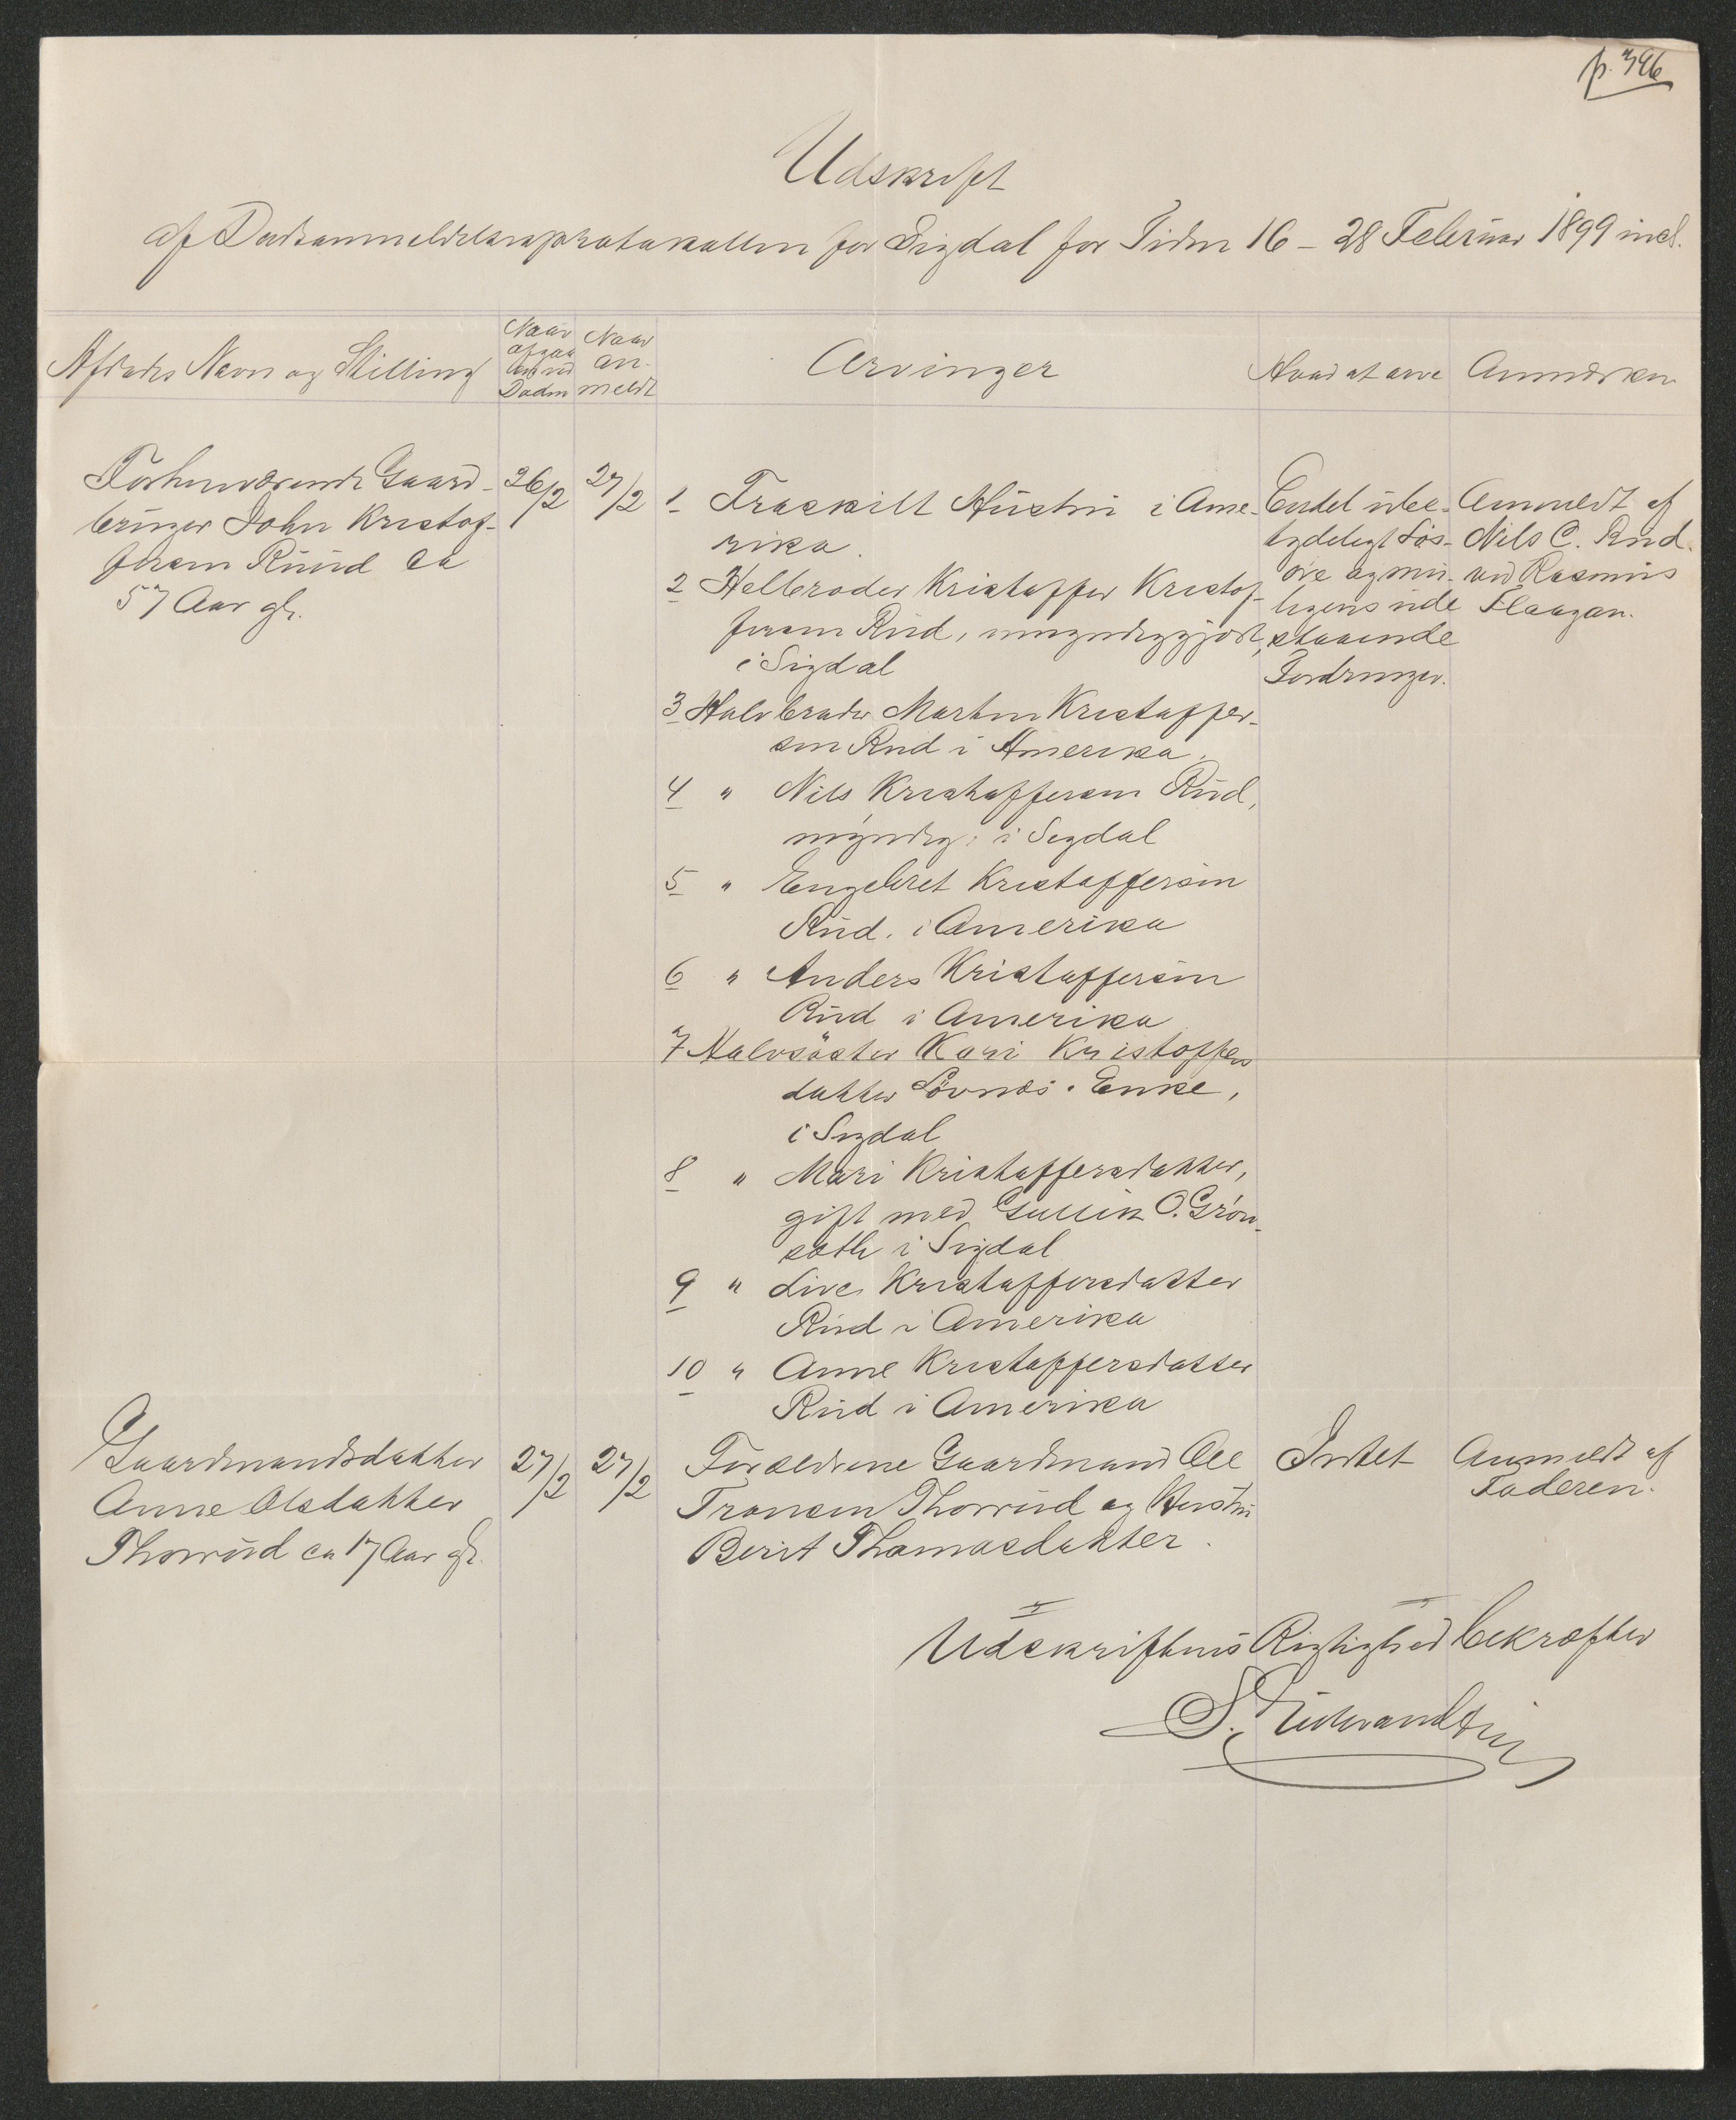 p. 396
Udskrift
af Dødsanmeldelsesprotokollen for Sigdal for Tiden 16 - 28 Februar 1899 incl.
Afdødes Navn og Stilling
Naar
afgaa
ved
Døden
Naar
an-
meldt
Arvinger
Hvad at arve
Anmærkn
Forhenværende Gaard-
bruger John Kristof-
fersen Ruud ca
57 Aar gl.
26/2
27/2
1 Fraskilt Hustru i Ame-
rika.
2 Helbroder Kristoffer Kristof-
fersen Rud, umyndiggjort,
i Sigdal
3 Halvbroder Martin Kristoffer-
sen Rud i Amerika,
4 " Nils Kristoffersen Rud,
myndig, i Sigdal
5 " Engebret Kristoffersen
Rud. i Amerika
6 " Anders Kristoffersen
Rud i Amerika
7 Halvsöster Kari Kristoffers
datter Lövnæs. Enke,
i Sigdal
8 " Mari Kristoffersdatter,
gift med Gullik O. Grøn-
sæth i Sigdal
9 " Live Kristoffersdatter
Rud i Amerika
10 " Anne Kristoffersdatter
Rud i Amerika
Endel ube-
tydeligt Løs-
øre og mu-
ligens ude
staaende
Fordringer.
Anmeldt af
Nils C. Rud.
ved Rasmus
Flaagan.
Gaardmandsdatter
Anne Olsdatter
Thorrud ca 17 Aar gl.
27/2
27/2
Forældrene Gaardmand Ole
Tronsen Thorrud og Hustru
Berit Thomasdatter.
Intet
Anmeldt af
Faderen.
Udskriftens Rigtighed bekræfter
S.